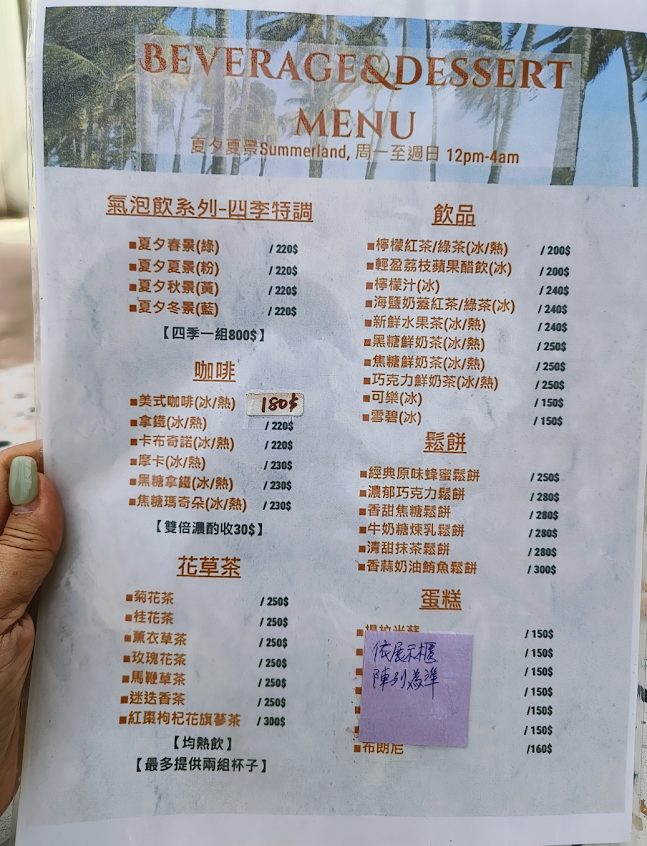 BEVERAGE&DESSERT
MENU
夏夕夏景Summerland, 周一至週日 12pm-4am
氣泡飲系列-四季特調
■夏夕春景(綠) / 220$
■夏夕夏景(粉) / 220$
■夏夕秋景(黃) / 220$
■夏夕冬景(藍) / 220$
【四季一組800$】
咖啡
■美式咖啡(冰/熱) 180$
■拿鐵(冰/熱) / 220$
■卡布奇諾(冰/熱) / 220$
■摩卡(冰/熱) / 230$
■黑糖拿鐵(冰/熱) / 230$
■焦糖瑪奇朵(冰/熱) / 230$
【雙倍濃酌收30$】
花草茶
■菊花茶 / 250$
■桂花茶 / 250$
■薰衣草茶 / 250$
■玫瑰花茶 / 250$
■馬鞭草茶 / 250$
■迷迭香茶 / 250$
■紅棗枸杞花旗蔘茶 / 300$
【均熱飲】
【最多提供兩組杯子】
飲品
■檸檬紅茶/綠茶(冰/熱) / 200$
■輕盈荔枝蘋果醋飲(冰) / 200$
■檸檬汁(冰) / 240$
■海鹽奶蓋紅茶/綠茶(冰) / 240$
■新鮮水果茶(冰/熱) / 240$
■黑糖鮮奶茶(冰/熱) / 250$
■焦糖鮮奶茶(冰/熱) / 250$
■巧克力鮮奶茶(冰/熱) / 250$
■可樂(冰) / 150$
■雪碧(冰) / 150$
鬆餅
■經典原味蜂蜜鬆餅 / 250$
■濃郁巧克力鬆餅 / 280$
■香甜焦糖鬆餅 / 280$
■牛奶糖煉乳鬆餅 / 280$
■清甜抹茶鬆餅 / 280$
■香蒜奶油鮪魚鬆餅 / 300$
蛋糕
■提拉米蘇 / 150$
/ 150$
/ 150$
/ 150$
/150$
/ 150$
■布朗尼 /160$
依展示櫃
陳列為準